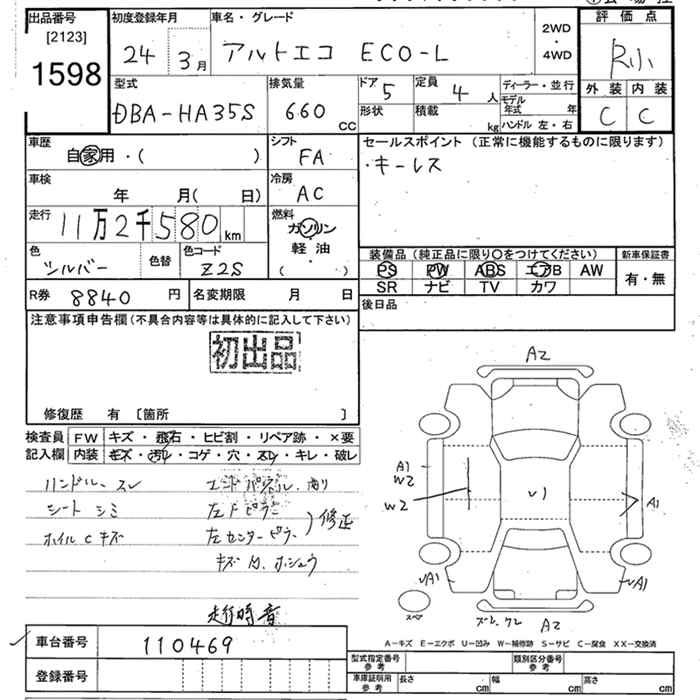 出品番号
[2123]
1598
初度登録年月
24 3月
車名・グレード
アルトエコ ECO-L
2WD
・
4WD
評価点
R小
外装 内装
C C
型式
DBA-HA35S
排気量
660 cc
ドア 5
形状
定員 4 人
積載 kg
ディーラー・並行
モデル年式 年
ハンドル 左・右
車歴
自家用・( )
シフト
FA
セールスポイント (正常に機能するものに限ります)
・キーレス
車検
年 月( 日)
冷房
AC
走行
11万2千580 km
燃料
ガソリン
軽油
・
( )
色
シルバー
色替
色コード
Z2S
装備品 (純正品に限り○をつけてください)
PS PW ABS エアB AW
SR ナビ TV カワ
新車保証書
有・無
R券 8840 円
名変期限 月 日
後日品
注意事項申告欄 (不具合内容等は具体的に記入して下さい)
初出品
修復歴 有 [箇所 ]
検査員
記入欄
FW キズ・飛石・ヒビ割・リペア跡・×要
内装 キズ・汚レ・コゲ・穴・スレ・キレ・破レ
ハンドル スレ
シート シミ
ホイルC キズ
エンドパネル
左Fピラー
左センターピラー
修正
走行時音
A2
A1
W2
W2
U1
A1
A1
A1
スペア
A2
A-キズ E-エクボ U-凹み W-補修跡 S-サビ C-腐食 XX-交換済
車台番号 110469
登録番号
型式指定番号
参考
類別区分番号
参考
車庫証明用
参考
長さ cm 幅 cm 高さ cm